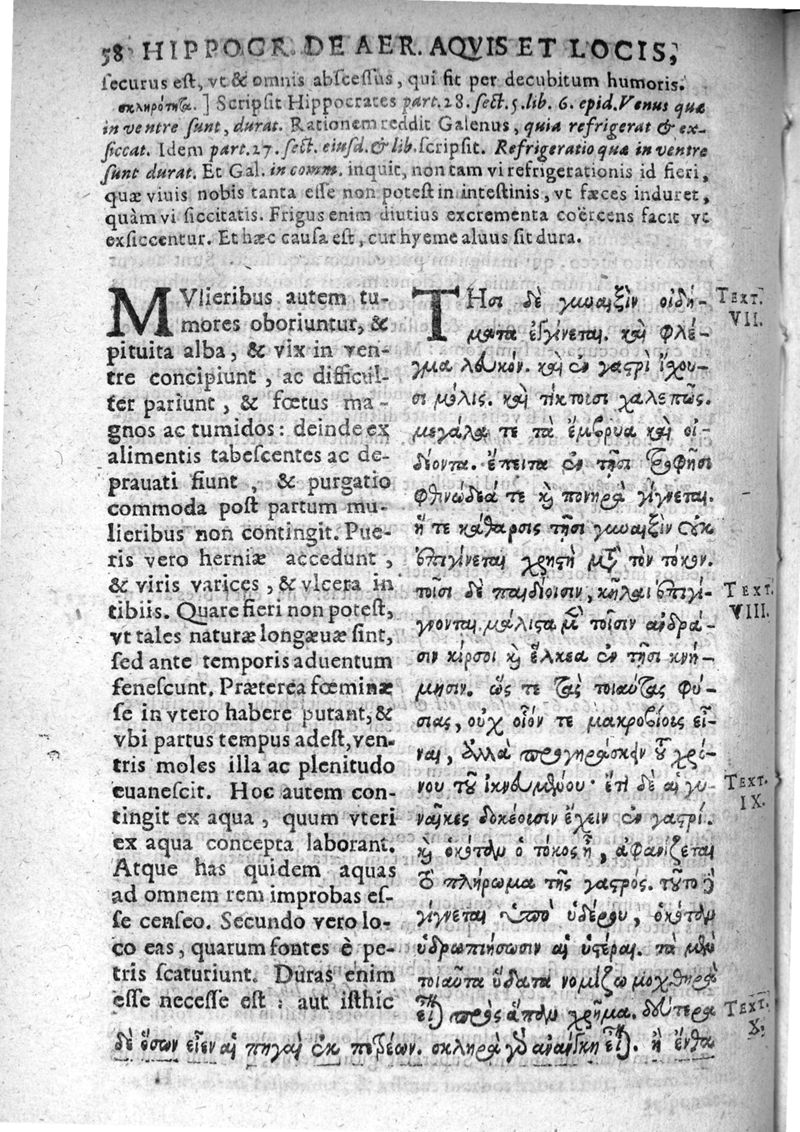 58 HIPPOCR. DE AER. AQVIS ET LOCIS,
ſecurus eſt, vt & omnis abſceſſus, qui fit per decubitum humoris.
σκληρότηζα. ] Scripſit Hippocrates part. 28. ſect. 5. lib. 6. epid. Venus quæ
in ventre ſunt, durat. Rationem reddit Galenus, quia refrigerat & ex-
ſiccat. Idem part. 27. ſect. eiuſd. & lib. ſcripſit. Refrigeratio quæ in ventre
ſunt durat. Et Gal. in comm. inquit, non tam vi refrigerationis id fieri,
quæ viuis nobis tanta eſſe non poteſt in inteſtinis, vt fæces induret,
quàm vi ſiccitatis. Frigus enim diutius excrementa coërcens facit vt
exſiccentur. Et hæc cauſa eſt, cur hyeme aluus ſit dura.
MVlieribus autem tu-
mores oboriuntur, &
pituita alba, & vix in ven-
tre concipiunt, ac difficul-
ter pariunt, & fœtus ma-
gnos ac tumidos: deinde ex
alimentis tabeſcentes ac de-
prauati fiunt, & purgatio
commoda poſt partum mu-
lieribus non contingit. Pue-
ris vero herniæ accedunt,
& viris varices, & vlcera in
tibiis. Quare fieri non poteſt,
vt tales naturæ longæuæ ſint,
ſed ante temporis aduentum
ſeneſcunt. Præterea fœminæ
ſe in vtero habere putant, &
vbi partus tempus adeſt, ven-
tris moles illa ac plenitudo
euaneſcit. Hoc autem con-
tingit ex aqua, quum vteri
ex aqua concepta laborant.
Atque has quidem aquas
ad omnem rem improbas eſ-
ſe cenſeo. Secundo vero lo-
co eas, quarum fontes è pe-
tris ſcaturiunt. Duras enim
eſſe neceſſe eſt: aut iſthic
ΤΗσι δὲ γυναιξὶν οἰδή-
ματα ἐγγίνεται. καὶ φλέ-
γμα λευκόν. καὶ ἐν γαστρὶ ἴχου-
σι μόλις. καὶ τίκτοισι χαλεπῶς.
μεγάλα τε τὰ ἔμβρυα καὶ οἰ-
δέοντα. ἔπειτα ἐν τῇσι τροφῇσι
φθινώδεά τε καὶ πονηρὰ γίγνεται.
ἥ τε κάθαρσις τῇσι γυναιξὶν οὐκ
ἐπιγίνεται χρηστὴ μετὰ τὸν τόκον.
τοῖσι δὲ παιδίοισιν, κῆλαι ἐπιγί-
γνονται μάλιστα μὲν τοῖσιν ἀνδρά-
σιν κιρσοὶ καὶ ἕλκεα ἐν τῇσι κνή-
μησιν. ὥς τε τὰς τοιαύτας φύ-
σιας, οὐχ οἷόν τε μακροβίοις εἶ-
ναι, ἀλλὰ προγηράσκειν τοῦ χρό-
νου τοῦ ἱκνευμένου· ἔτι δὲ αἱ γυ-
ναῖκες δοκέοισιν ἔχειν ἐν γαστρί.
καὶ ὁκόταν ὁ τόκος ᾖ, ἀφανίζεται
τὸ πλήρωμα τῆς γαστρός. τοῦτο δὲ
γίγνεται ὑπὸ ὑδέρου, ὁκόταν
ὑδρωπιήσωσιν αἱ ὑστέραι. τὰ μὲν
τοιαῦτα ὕδατα νομίζω μοχθηρὰ
εἶναι πρὸς ἅπαν χρῆμα. δεύτερα
δὲ ὅσων εἶεν αἱ πηγαὶ ἐκ πετρέων. σκληρὰ γὰρ ἀνάγκη εἶναι. ἢ ἔνθα
TEXT.
VII.
TEXT.
VIII.
TEXT.
IX.
TEXT.
X.